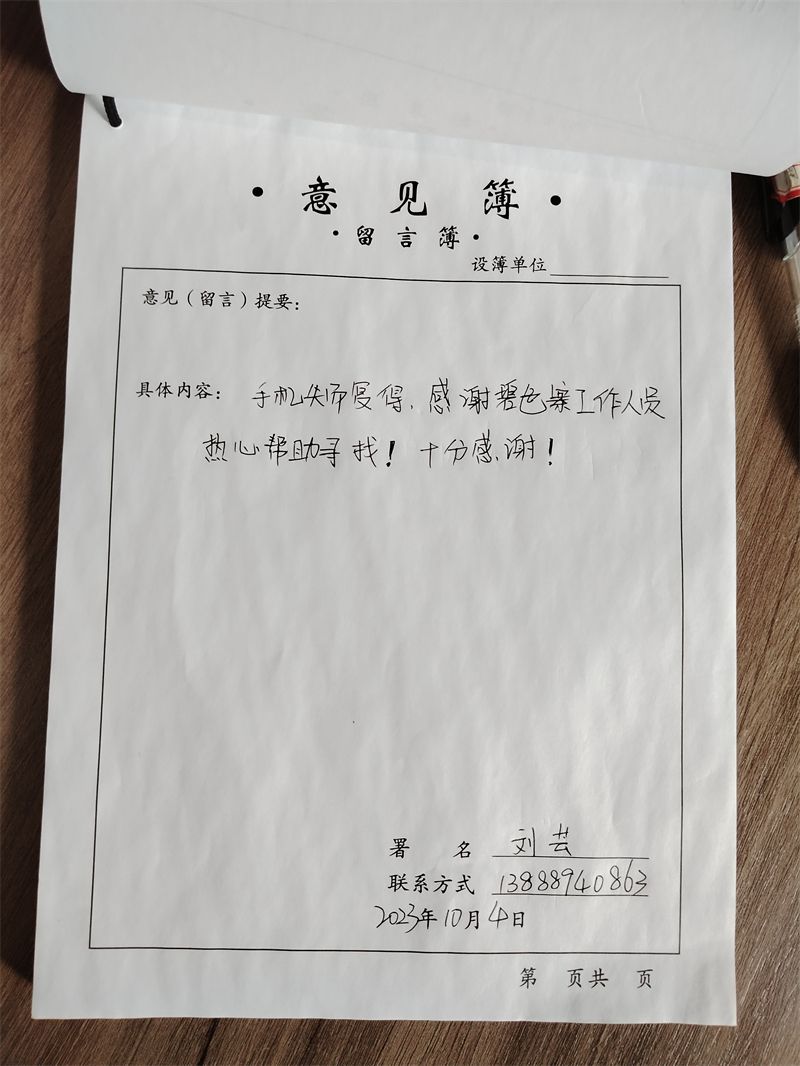 ·意见簿·
·留言簿·
设簿单位
意见（留言）提要：
具体内容：手机失而复得，感谢碧色寨工作人员
热心帮助寻找！十分感谢！
署名 刘芸
联系方式 13888940863
2023年10月4日
第 页共 页